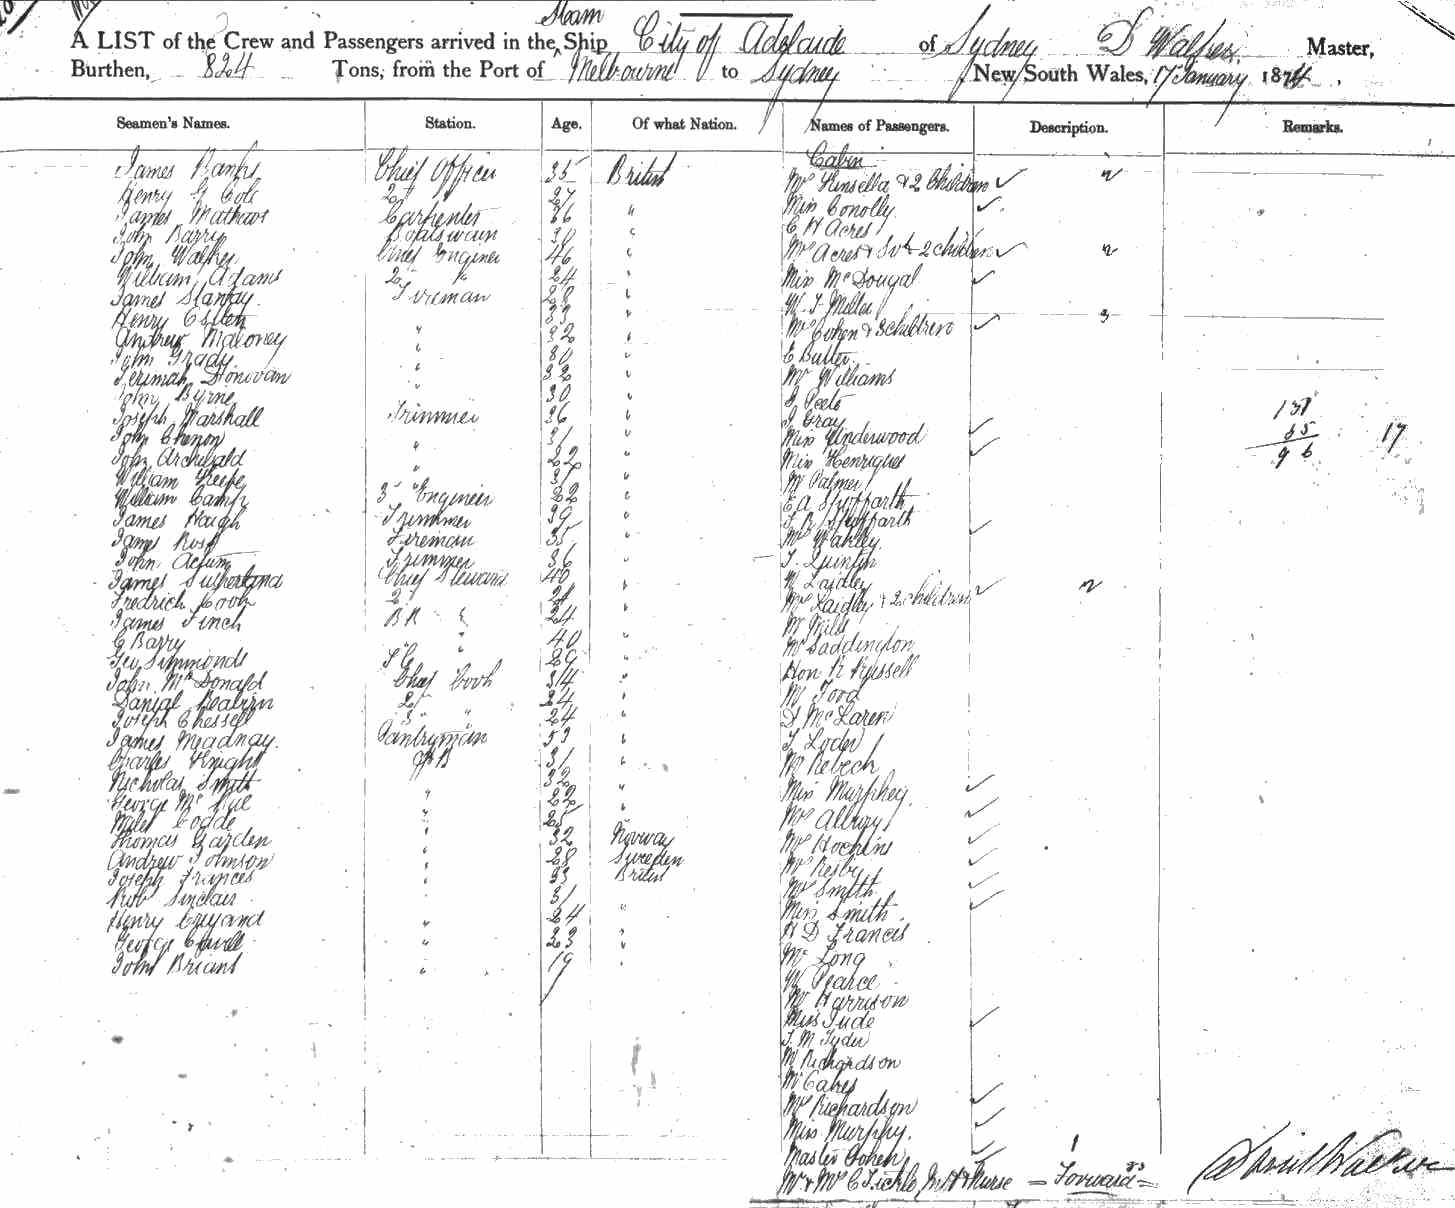 Steam
A LIST of the Crew and Passengers arrived in the Ship City of Adelaide of Sydney D Walker Master,
Burthen, 824 Tons, from the Port of Melbourne to Sydney New South Wales, 17 January 1874.
Seamen's Names. Station. Age. Of what Nation. Names of Passengers. Description. Remarks.
Cabin
James Banks Chief Officer 35 British Mrs Kinsella & 2 Children 2
Henry G Cole 2nd 27 " Miss Conolly
James Mathews Carpenter 36 " C H Acres
John Barry Boatswain 30 " Mrs Acres & Svt & 2 children 2
John Walker Chief Engineer 46 "
William Adams 2nd " 24 " Miss McDougal
James Fireman 28 " W. T. Miller
Henry 33 " Mrs Cohen & 3 children 3
Andrew Maloney " 32 " E Butler
John Grady " 30 " Mr Williams
Jerimah Donovan " 32 "
John Byrne " 30 " J Peete
Joseph Marshall Trimmer 36 " J Gray 131
John " 31 " Miss Underwood 35 17
John Archibald " 22 " Miss Henriques 96
William " 37 " Mr Palmer
William Camp 3rd Engineer 22 " E A
James Hough Trimmer 39 " F. R.
James Ross Fireman 35 " Mrs
John Trimmer 36 " T. Quintin
James Sutherland Chief Steward 40 " Mr Laidley
Fredrich Cook 2nd " Mrs Laidley & 2 children 2
James Finch BR " 24 " Mr Mills
C Barry " 40 " Mr Saddington
Geo Simmonds S C 29 " Hon R Russell
John McDonald Chief Cook 34 " Mr Todd
Danial 2nd 24 " D McLaren
Joseph Chessell 3rd " 24 " J Loder
James Pantryman 53 " Mr Rebech
Charles Knight AB 31 " Miss Murphey
Nicholas Smith 32 "
George Mc " 22 " Mrs
Miles " 25 " Mrs Hoskins
Thomas Garden " 32 Norway Mrs
Andrew Johnson " 28 Sweden Mrs Smith
Joseph Frances " 33 British Miss Smith
Rob Sinclair " 31 H D Francis
Henry " 24 " Mr Long
George " 23 " W Pearce
John Brians " 19 " Mr Harrison
Miss Jude
J. M.
Mr Richardson
Mr
Mrs Richardson
Miss Murphy
Master Cohen
Mr & Mrs C Tickle Inft & Nurse = Forward = David Walker